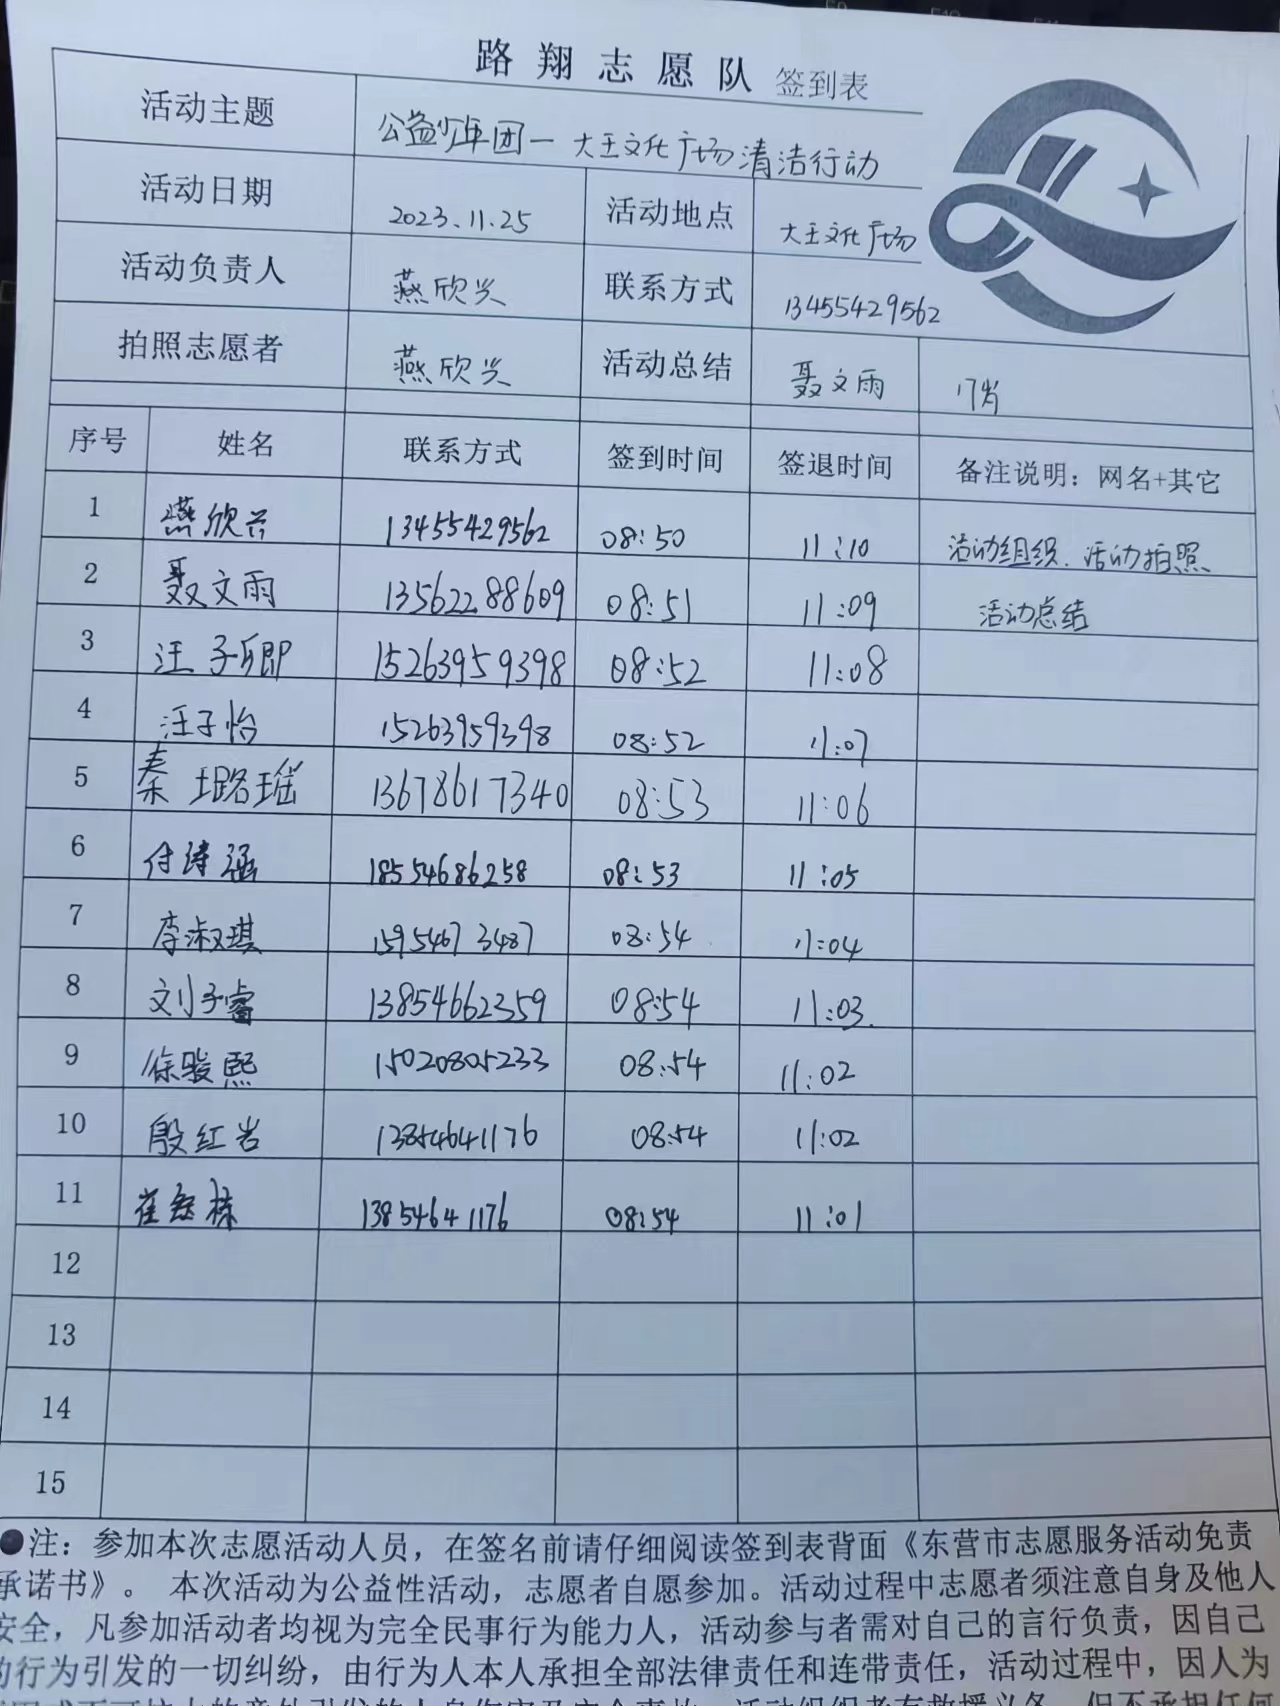 路翔志愿队 签到表
活动主题 公益少年团一大王文化广场清洁行动
活动日期 2023.11.25 活动地点 大王文化广场
活动负责人 燕欣兴 联系方式 13455429562
拍照志愿者 燕欣兴 活动总结 聂文雨 17岁
序号 姓名 联系方式 签到时间 签退时间 备注说明：网名+其它
1 燕欣兴 13455429562 08:50 11:10 活动组织、活动拍照
2 聂文雨 13562288609 08:51 11:09 活动总结
3 汪子卿 15263959398 08:52 11:08
4 汪子怡 15263959398 08:52 11:07
5 秦璐瑶 13678617340 08:53 11:06
6 付诗涵 18554686258 08:53 11:05
7 李淑琪 15954673487 08:54 11:04
8 刘子睿 13854662359 08:54 11:03
9 徐骏熙 15020805233 08:54 11:02
10 殷红岩 13854641176 08:54 11:02
11 崔 栋 13854641176 08:54 11:01
12
13
14
15
●注：参加本次志愿活动人员，在签名前请仔细阅读签到表背面《东营市志愿服务活动免责
承诺书》。 本次活动为公益性活动，志愿者自愿参加。活动过程中志愿者须注意自身及他人
安全，凡参加活动者均视为完全民事行为能力人，活动参与者需对自己的言行负责，因自己
的行为引发的一切纠纷，由行为人本人承担全部法律责任和连带责任，活动过程中，因人为